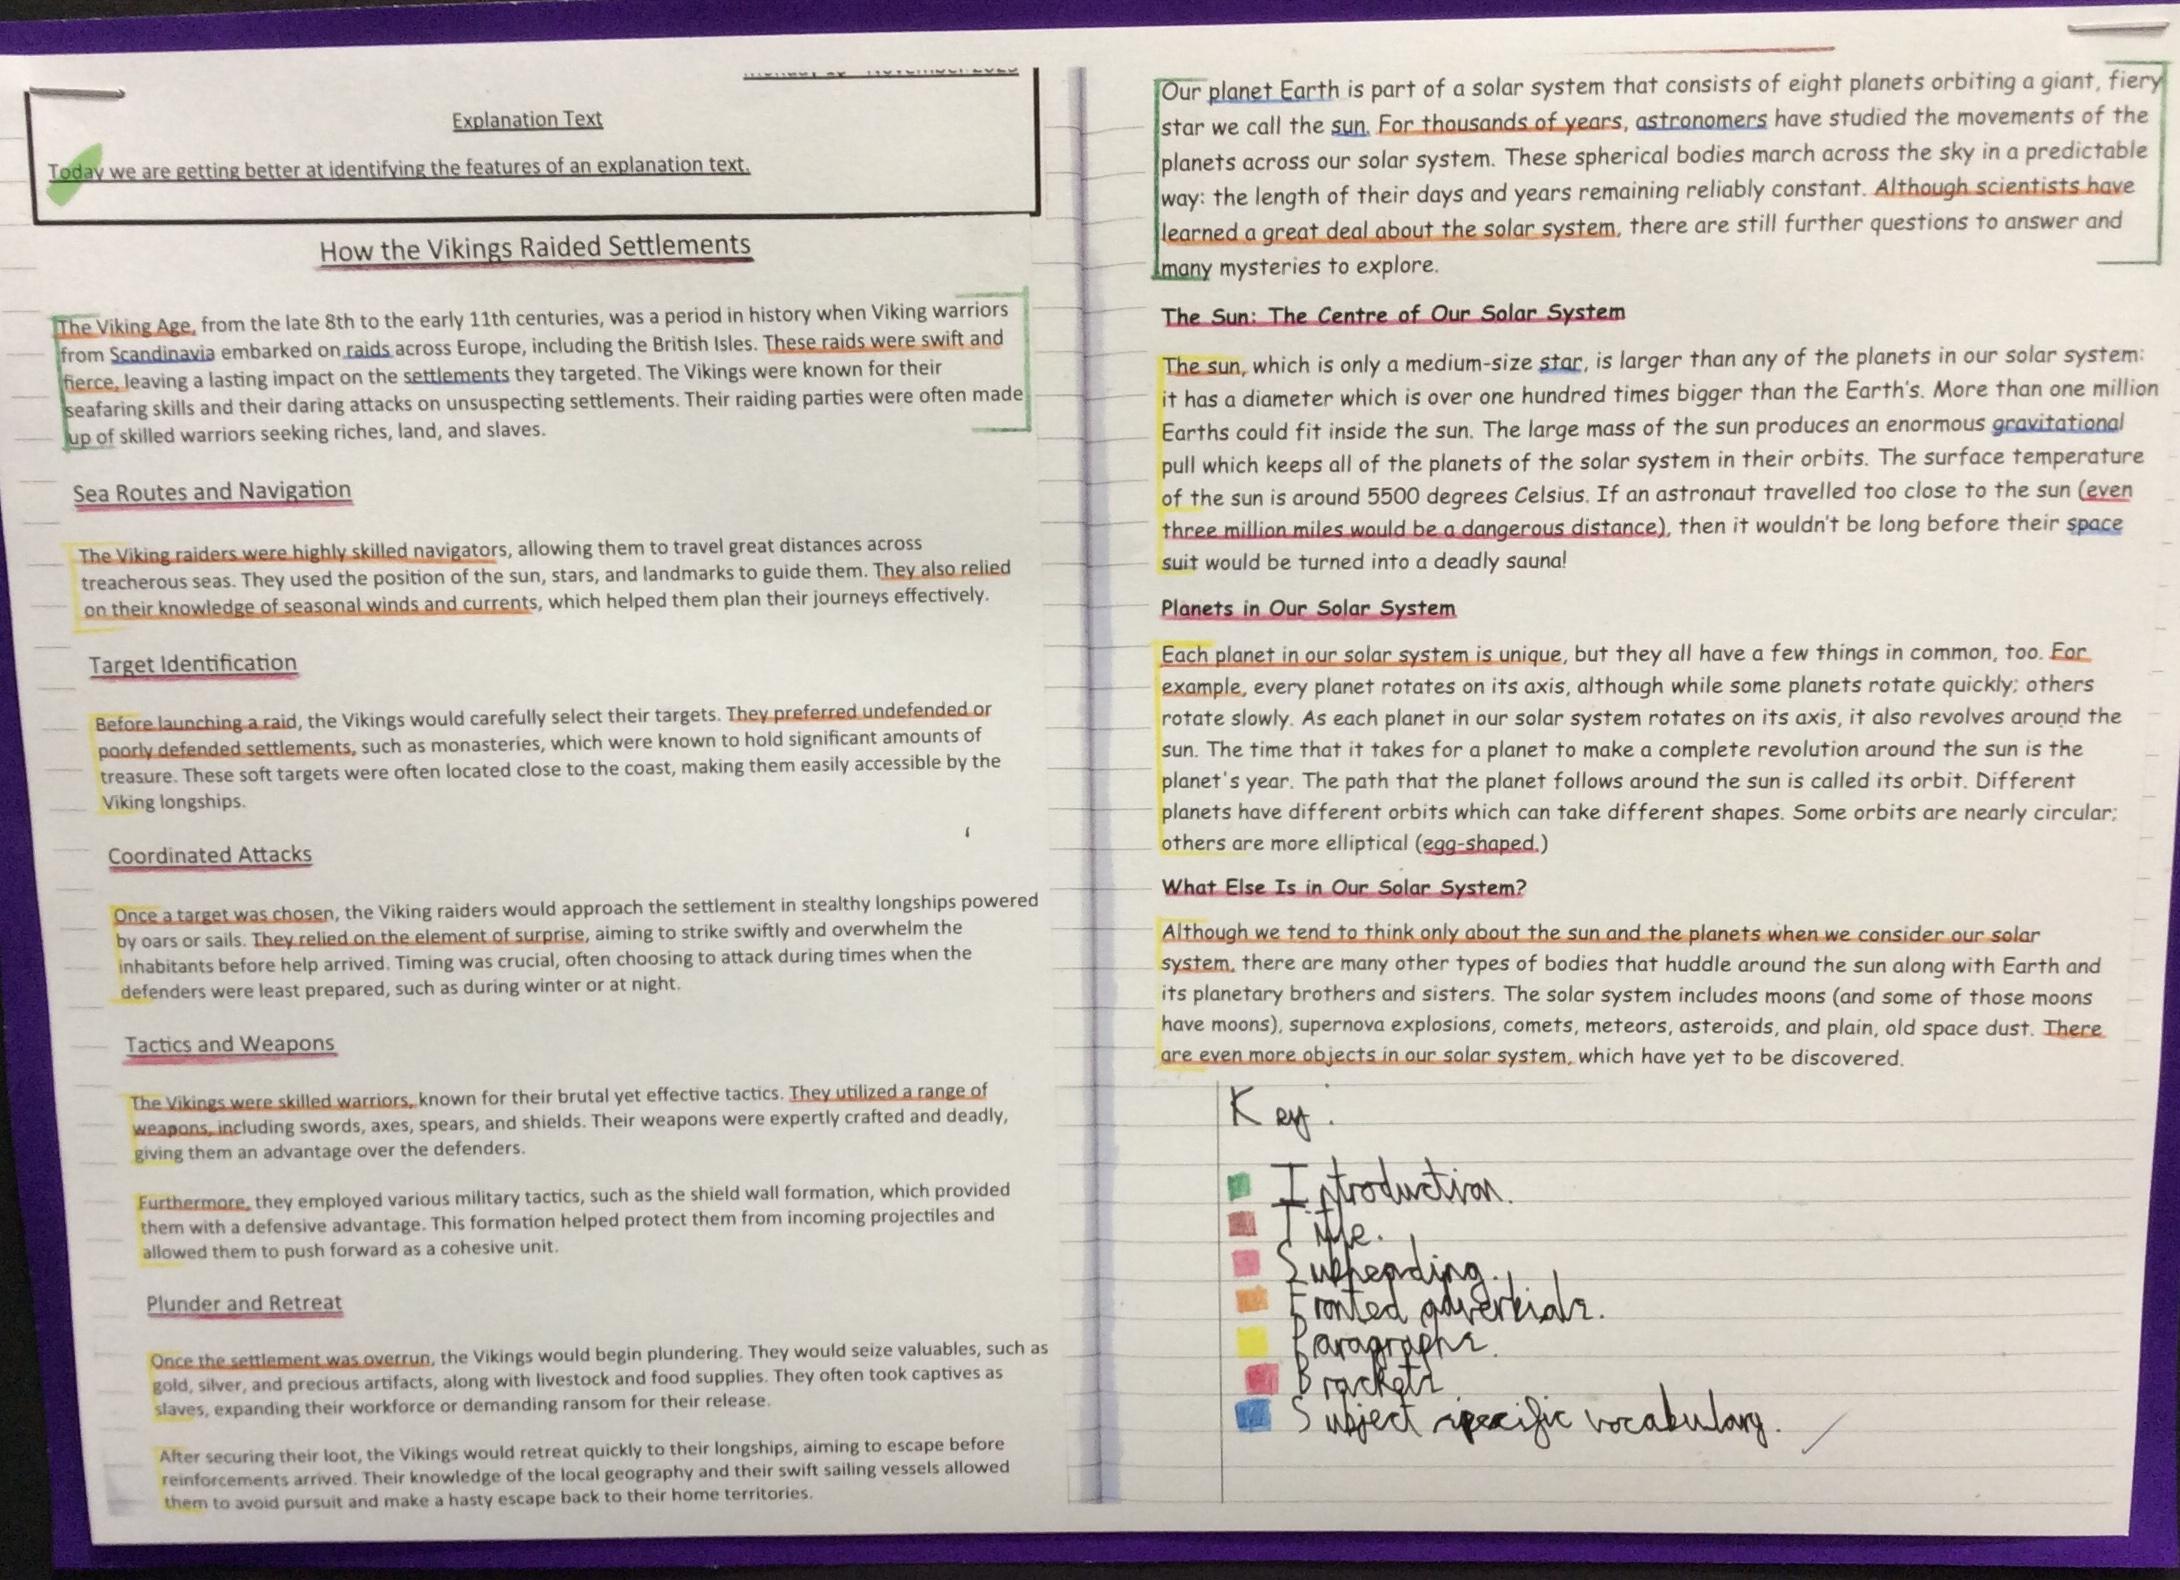 Explanation Text
Today we are getting better at identifying the features of an explanation text.
How the Vikings Raided Settlements
The Viking Age, from the late 8th to the early 11th centuries, was a period in history when Viking warriors
from Scandinavia embarked on raids across Europe, including the British Isles. These raids were swift and
fierce, leaving a lasting impact on the settlements they targeted. The Vikings were known for their
seafaring skills and their daring attacks on unsuspecting settlements. Their raiding parties were often made
up of skilled warriors seeking riches, land, and slaves.
Sea Routes and Navigation
The Viking raiders were highly skilled navigators, allowing them to travel great distances across
treacherous seas. They used the position of the sun, stars, and landmarks to guide them. They also relied
on their knowledge of seasonal winds and currents, which helped them plan their journeys effectively.
Target Identification
Before launching a raid, the Vikings would carefully select their targets. They preferred undefended or
poorly defended settlements, such as monasteries, which were known to hold significant amounts of
treasure. These soft targets were often located close to the coast, making them easily accessible by the
Viking longships.
Coordinated Attacks
Once a target was chosen, the Viking raiders would approach the settlement in stealthy longships powered
by oars or sails. They relied on the element of surprise, aiming to strike swiftly and overwhelm the
inhabitants before help arrived. Timing was crucial, often choosing to attack during times when the
defenders were least prepared, such as during winter or at night.
Tactics and Weapons
The Vikings were skilled warriors, known for their brutal yet effective tactics. They utilized a range of
weapons, including swords, axes, spears, and shields. Their weapons were expertly crafted and deadly,
giving them an advantage over the defenders.
Furthermore, they employed various military tactics, such as the shield wall formation, which provided
them with a defensive advantage. This formation helped protect them from incoming projectiles and
allowed them to push forward as a cohesive unit.
Plunder and Retreat
Once the settlement was overrun, the Vikings would begin plundering. They would seize valuables, such as
gold, silver, and precious artifacts, along with livestock and food supplies. They often took captives as
slaves, expanding their workforce or demanding ransom for their release.
After securing their loot, the Vikings would retreat quickly to their longships, aiming to escape before
reinforcements arrived. Their knowledge of the local geography and their swift sailing vessels allowed
them to avoid pursuit and make a hasty escape back to their home territories.
Our planet Earth is part of a solar system that consists of eight planets orbiting a giant, fiery
star we call the sun. For thousands of years, astronomers have studied the movements of the
planets across our solar system. These spherical bodies march across the sky in a predictable
way: the length of their days and years remaining reliably constant. Although scientists have
learned a great deal about the solar system, there are still further questions to answer and
many mysteries to explore.
The Sun: The Centre of Our Solar System
The sun, which is only a medium-size star, is larger than any of the planets in our solar system:
it has a diameter which is over one hundred times bigger than the Earth's. More than one million
Earths could fit inside the sun. The large mass of the sun produces an enormous gravitational
pull which keeps all of the planets of the solar system in their orbits. The surface temperature
of the sun is around 5500 degrees Celsius. If an astronaut travelled too close to the sun (even
three million miles would be a dangerous distance), then it wouldn't be long before their space
suit would be turned into a deadly sauna!
Planets in Our Solar System
Each planet in our solar system is unique, but they all have a few things in common, too. For
example, every planet rotates on its axis, although while some planets rotate quickly; others
rotate slowly. As each planet in our solar system rotates on its axis, it also revolves around the
sun. The time that it takes for a planet to make a complete revolution around the sun is the
planet's year. The path that the planet follows around the sun is called its orbit. Different
planets have different orbits which can take different shapes. Some orbits are nearly circular;
others are more elliptical (egg-shaped.)
What Else Is in Our Solar System?
Although we tend to think only about the sun and the planets when we consider our solar
system, there are many other types of bodies that huddle around the sun along with Earth and
its planetary brothers and sisters. The solar system includes moons (and some of those moons
have moons), supernova explosions, comets, meteors, asteroids, and plain, old space dust. There
are even more objects in our solar system, which have yet to be discovered.
Key:
Introduction.
Title.
Subheading.
Fronted adverbials.
Paragraphs.
Brackets
Subject specific vocabulary.